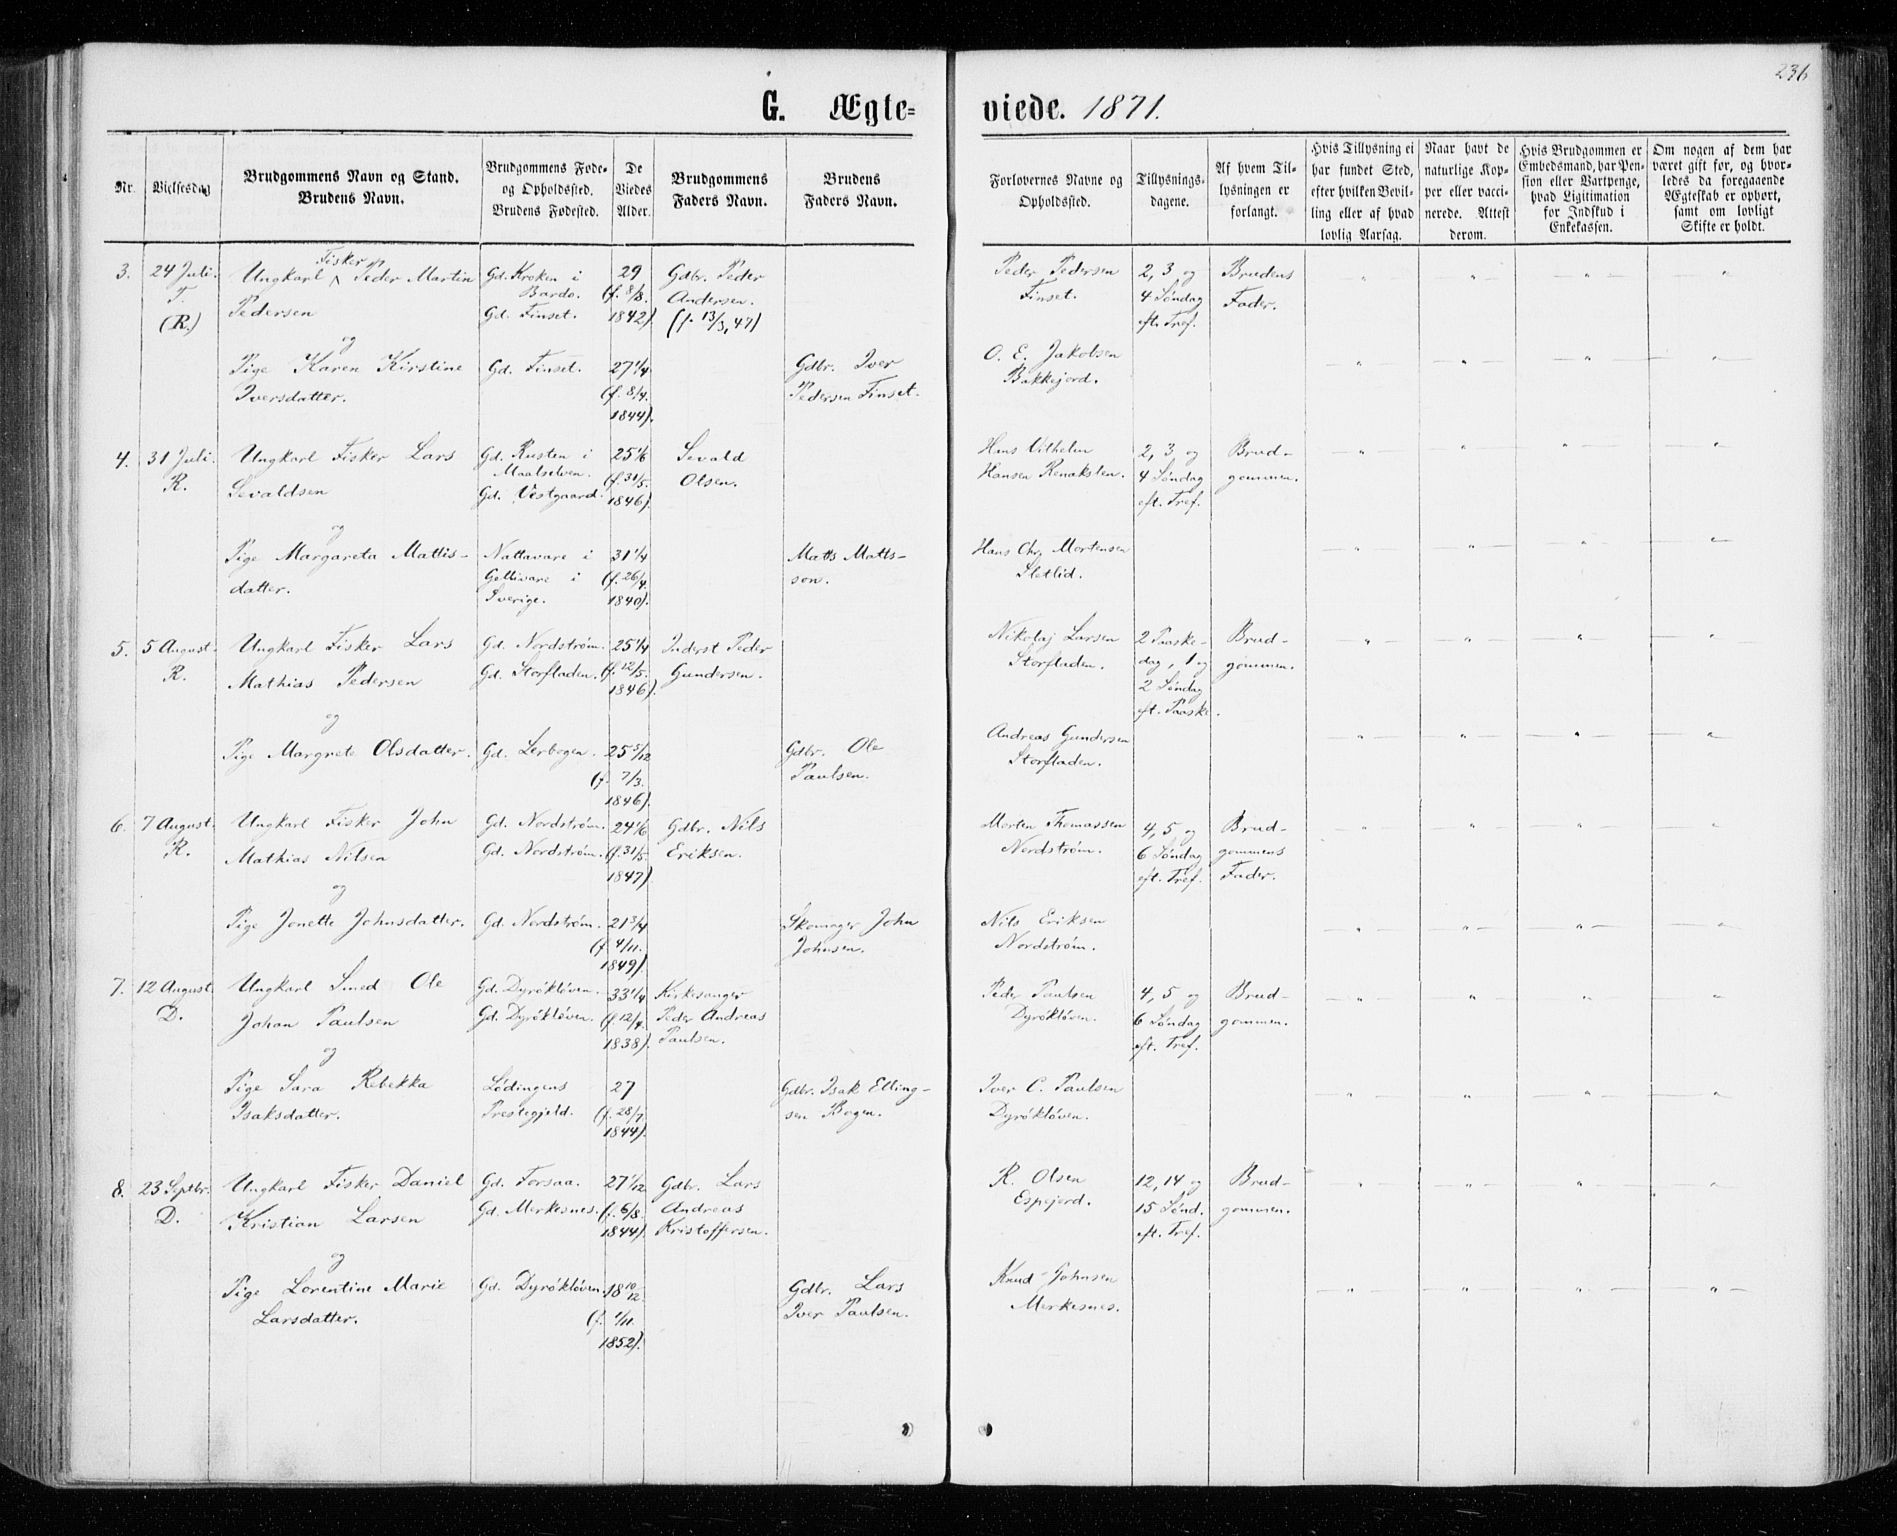 236
G. Ægteviede. 1871.
Nr.
Vielsesdag
Brudgommens Navn og Stand.
Brudens Navn.
Brudgommens Føde-
og Opholdssted.
Brudens Fødested.
De
Viedes
Alder.
Brudgommens
Faders Navn.
Brudens
Faders Navn.
Forlovernes Navne og
Opholdssted.
Tillysnings-
dagene.
Af hvem Til-
lysningen er
forlangt.
Hvis Tillysning ei
har fundet Sted,
efter hvilken Bevil-
ling eller af hvad
lovlig Aarsag.
Naar havt de
naturlige Kop-
per eller vacci-
nerede. Attest
derom.
Hvis Brudgommen er
Embedsmand, har Pen-
sion eller Vartpenge,
hvad Ligitimation
for Indskud i
Enkekassen.
Om nogen af dem har
været gift før, og hvor-
ledes da foregaaende
Ægteskab er ophørt,
samt om lovligt
Skifte er holdt.
3.
24 Juli.
T.
(R.)
Fisker
Ungkarl ^ Peder Martin
Pedersen
Gd. Kroken i
Bardo.
Gd. Finset.
29
(f. 8/8.
1842).
Gdbr. Peder
Andersen.
(f. 13/3, 47)
Peder Pedersen
Finset.
2, 3 og
4 Søndag
eft. Tref.
Brudens
Fader.
og
Pige Karen Kirstine
Iversdatter.
Gd. Finset.
27 1/4
(f. 8/4.
1844).
Gdbr. Iver
Pedersen Finset.
O. E. Jakobsen
Bakkejord.
4.
31 Juli.
R.
Ungkarl Fisker Lars
Sevaldsen
Gd. Rusten i
Maalselven.
Gd. Vestgaard.
25 1/6
(f. 31/5.
1846).
Sevald
Olsen.
Hans Vilhelm
Hansen Renakslen.
2, 3 og
4 Søndag
eft. Tref.
Brud-
gommen.
og
Pige Margareta Mattis-
datter.
Nattavare i
Gellivare i
Sverige.
31 1/4
(f. 26/4.
1840).
Matts Matts-
son.
Hans Chr. Mortensen
Sletlid.
5.
5 August.
R.
Ungkarl Fisker Lars
Mathias Pedersen
Gd. Nordstrøm.
Gd. Storfladen.
25 1/4
(f. 12/5.
1846).
Inderst Peder
Gundersen.
Nikolaj Larsen
Storfladen.
2 Paaske-
dag, 1 og
2 Søndag
eft. Paaske.
Brud-
gommen.
og
Pige Margrete Olsdatter.
Gd. Lerbogen.
25 5/12
(f. 7/3.
1846).
Gdbr. Ole
Paulsen.
Andreas Gundersen
Storfladen.
6.
7 August.
R.
Ungkarl Fisker John
Mathias Nilsen
Gd. Nordstrøm.
Gd. Nordstrøm.
24 1/6
(f. 31/5.
1847).
Gdbr. Nils
Eriksen.
Morten Thomassen
Nordstrøm.
4, 5 og
6 Søndag
eft. Tref.
Brud-
gommens
Fader.
og
Pige Jonette Johnsdatter.
Gd. Nordstrøm.
21 3/4
(f. 4/11.
1849).
Skomager John
Johnsen.
Nils Eriksen
Nordstrøm.
7.
12 August.
D.
Ungkarl Smed Ole
Johan Paulsen
Gd. Dyrøkløven.
Gd. Dyrøkløven.
33 1/4
(f. 12/4.
1838).
Kirkesanger
Peder Andreas
Paulsen.
Peder Paulsen
Dyrøkløven.
4, 5 og
6 Søndag
eft. Tref.
Brud-
gommen.
og
Pige Sara Rebekka
Isaksdatter.
Lødingens
Prestegjeld.
27
(f. 28/7.
1844).
Gdbr. Isak Elling-
sen Bogen.
Iver C. Paulsen
Dyrøkløven.
8.
23 Septbr.
D.
Ungkarl Fisker Daniel
Kristian Larsen
Gd. Forsaa.
Gd. Merkesnes.
27 1/12
(f. 6/8.
1844).
Gdbr. Lars
Andreas
Kristoffersen.
R. Olsen
Espejord.
12, 14 og
15 Sønd.
eft. Tref.
Brud-
gommen.
og
Pige Lorentine Marie
Larsdatter.
Gd. Dyrøkløven.
18 10/12
(f. 1/11.
1852).
Gdbr. Lars
Iver Paulsen.
Knud Johnsen
Merkesnes.